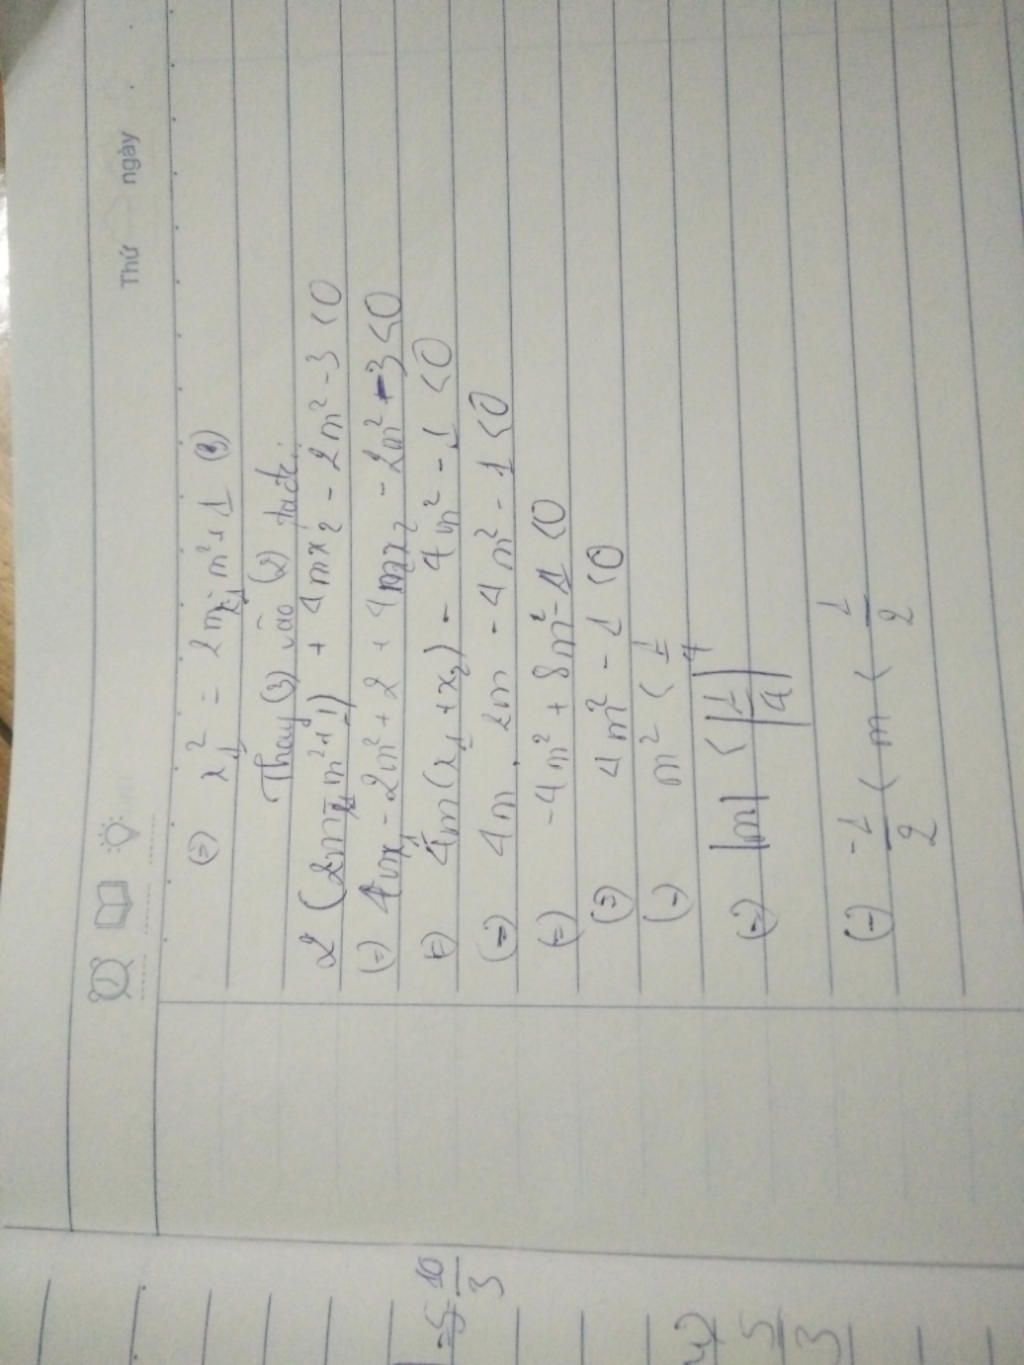 Thứ ngày
(=) x₁² = 2mx₁ - m² + 1 (3)
Thay (3) vào (2) tađc:
2 (2mx₁ - m² + 1) + 4mx₂ - 2m² - 3 < 0
(=) 4mx₁ - 2m² + 2 + 4mx₂ - 2m² - 3 < 0
(=) 4m(x₁ + x₂) - 4m² - 1 < 0
(=) 4m . 2m - 4m² - 1 < 0
(=) -4m² + 8m² - 1 < 0
(=) 4m² - 1 < 0
(=) m² < 1/4
(=) |m| < |1/4|
(=) -1/2 < m < 1/2
10/3
5/3